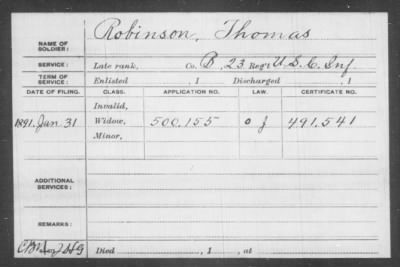 Robinson, Thomas
NAME OF SOLDIER:
SERVICE: Late rank, Co. B, 23 Reg't U.S.C. Inf
TERM OF SERVICE: Enlisted , 1 Discharged , 1
DATE OF FILING. CLASS. APPLICATION NO. LAW. CERTIFICATE NO.
Invalid,
1891, Jan 31 Widow, 500.155 of 491.541
Minor,
ADDITIONAL SERVICES:
REMARKS:
Died , 1 , at